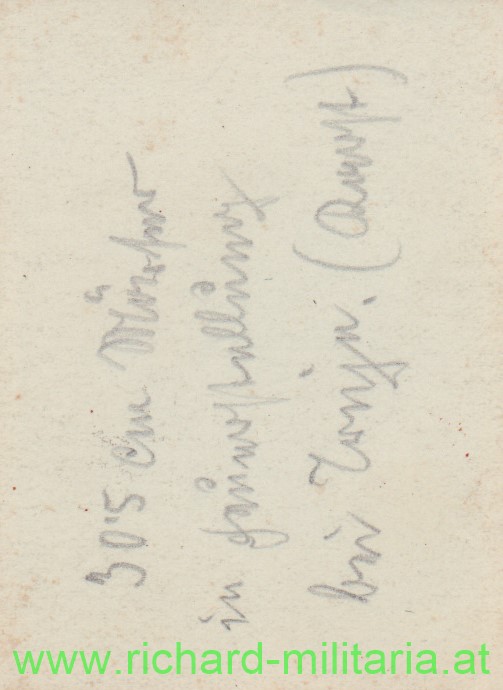 30'5 cm Mörser
in Feuerstellung
bei
www.richard-militaria.at